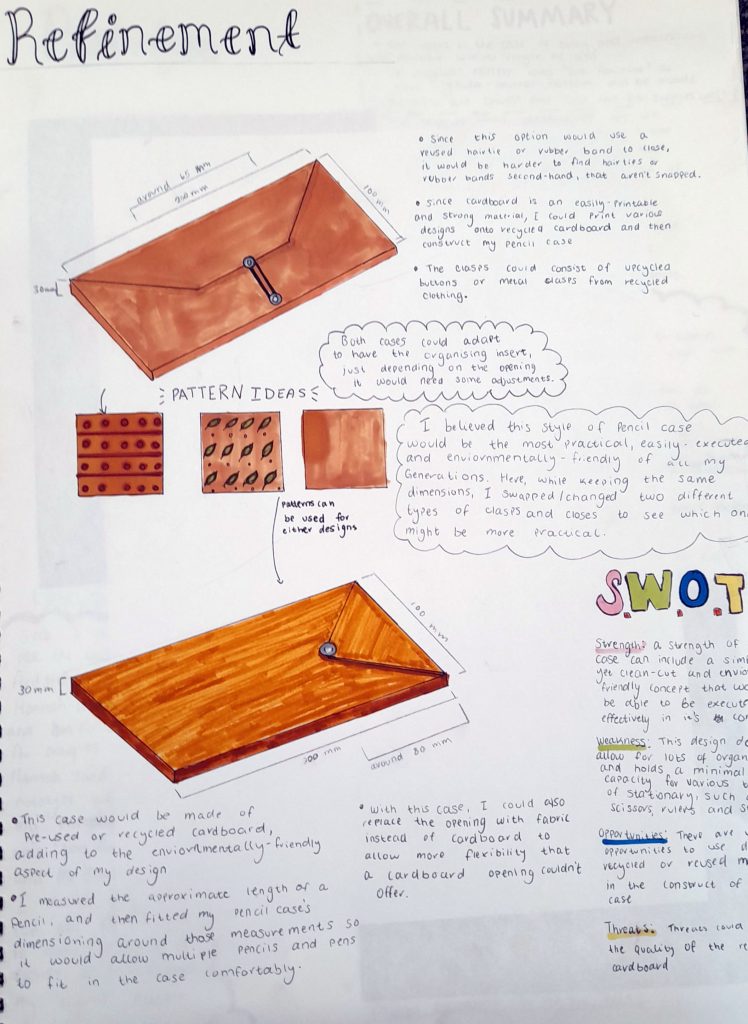 Refinement
OVERALL SUMMARY
• Since this option would use a
reused hairtie or rubber band to close,
it would be harder to find hairties or
rubber bands second-hand, that aren't snapped.
• Since cardboard is an easily-printable
and strong material, I could print various
designs onto recycled cardboard and then
construct my pencil case
• The clasps could consist of upcycled
buttons or metal clasps from recycled
clothing.
around 65 mm
200 mm
100 mm
30mm
Both cases could adapt
to have the organising insert,
just depending on the opening
it would need some adjustments.
PATTERN IDEAS
I believed this style of pencil case
would be the most practical, easily-executed
and enviornmentally-friendly of all my
Generations. Here, while keeping the same
dimensions, I swapped/changed two different
types of clasps and closes to see which on
might be more practical.
patterns can
be used for
either designs
100 mm
30mm
200 mm
around 80 mm
S.W.O.T
Strength: a strength of
case can include a sim
yet clean-cut and envio
friendly concept that wo
be able to be execut
effectively in it's con
Weakness: This design do
allow for lots of organ
and holds a minimal
capacity for various t
of stationary, such a
scissors, rulers and s
Opportunities: There are v
opportunities to use d
recycled or reused m
in the construct of
case
Threats: Threats could
the quality of the re
cardboard
• This case would be made of
Pre-used or recycled cardboard,
adding to the enviornmentally-friendly
aspect of my design
• I measured the approximate length of a
pencil, and then fitted my pencil case's
dimensioning around those measurements so
it would allow multiple pencils and pens
to fit in the case comfortably.
• With this case, I could also
replace the opening with fabric
instead of cardboard to
allow more flexibility that
a cardboard opening couldn't
offer.